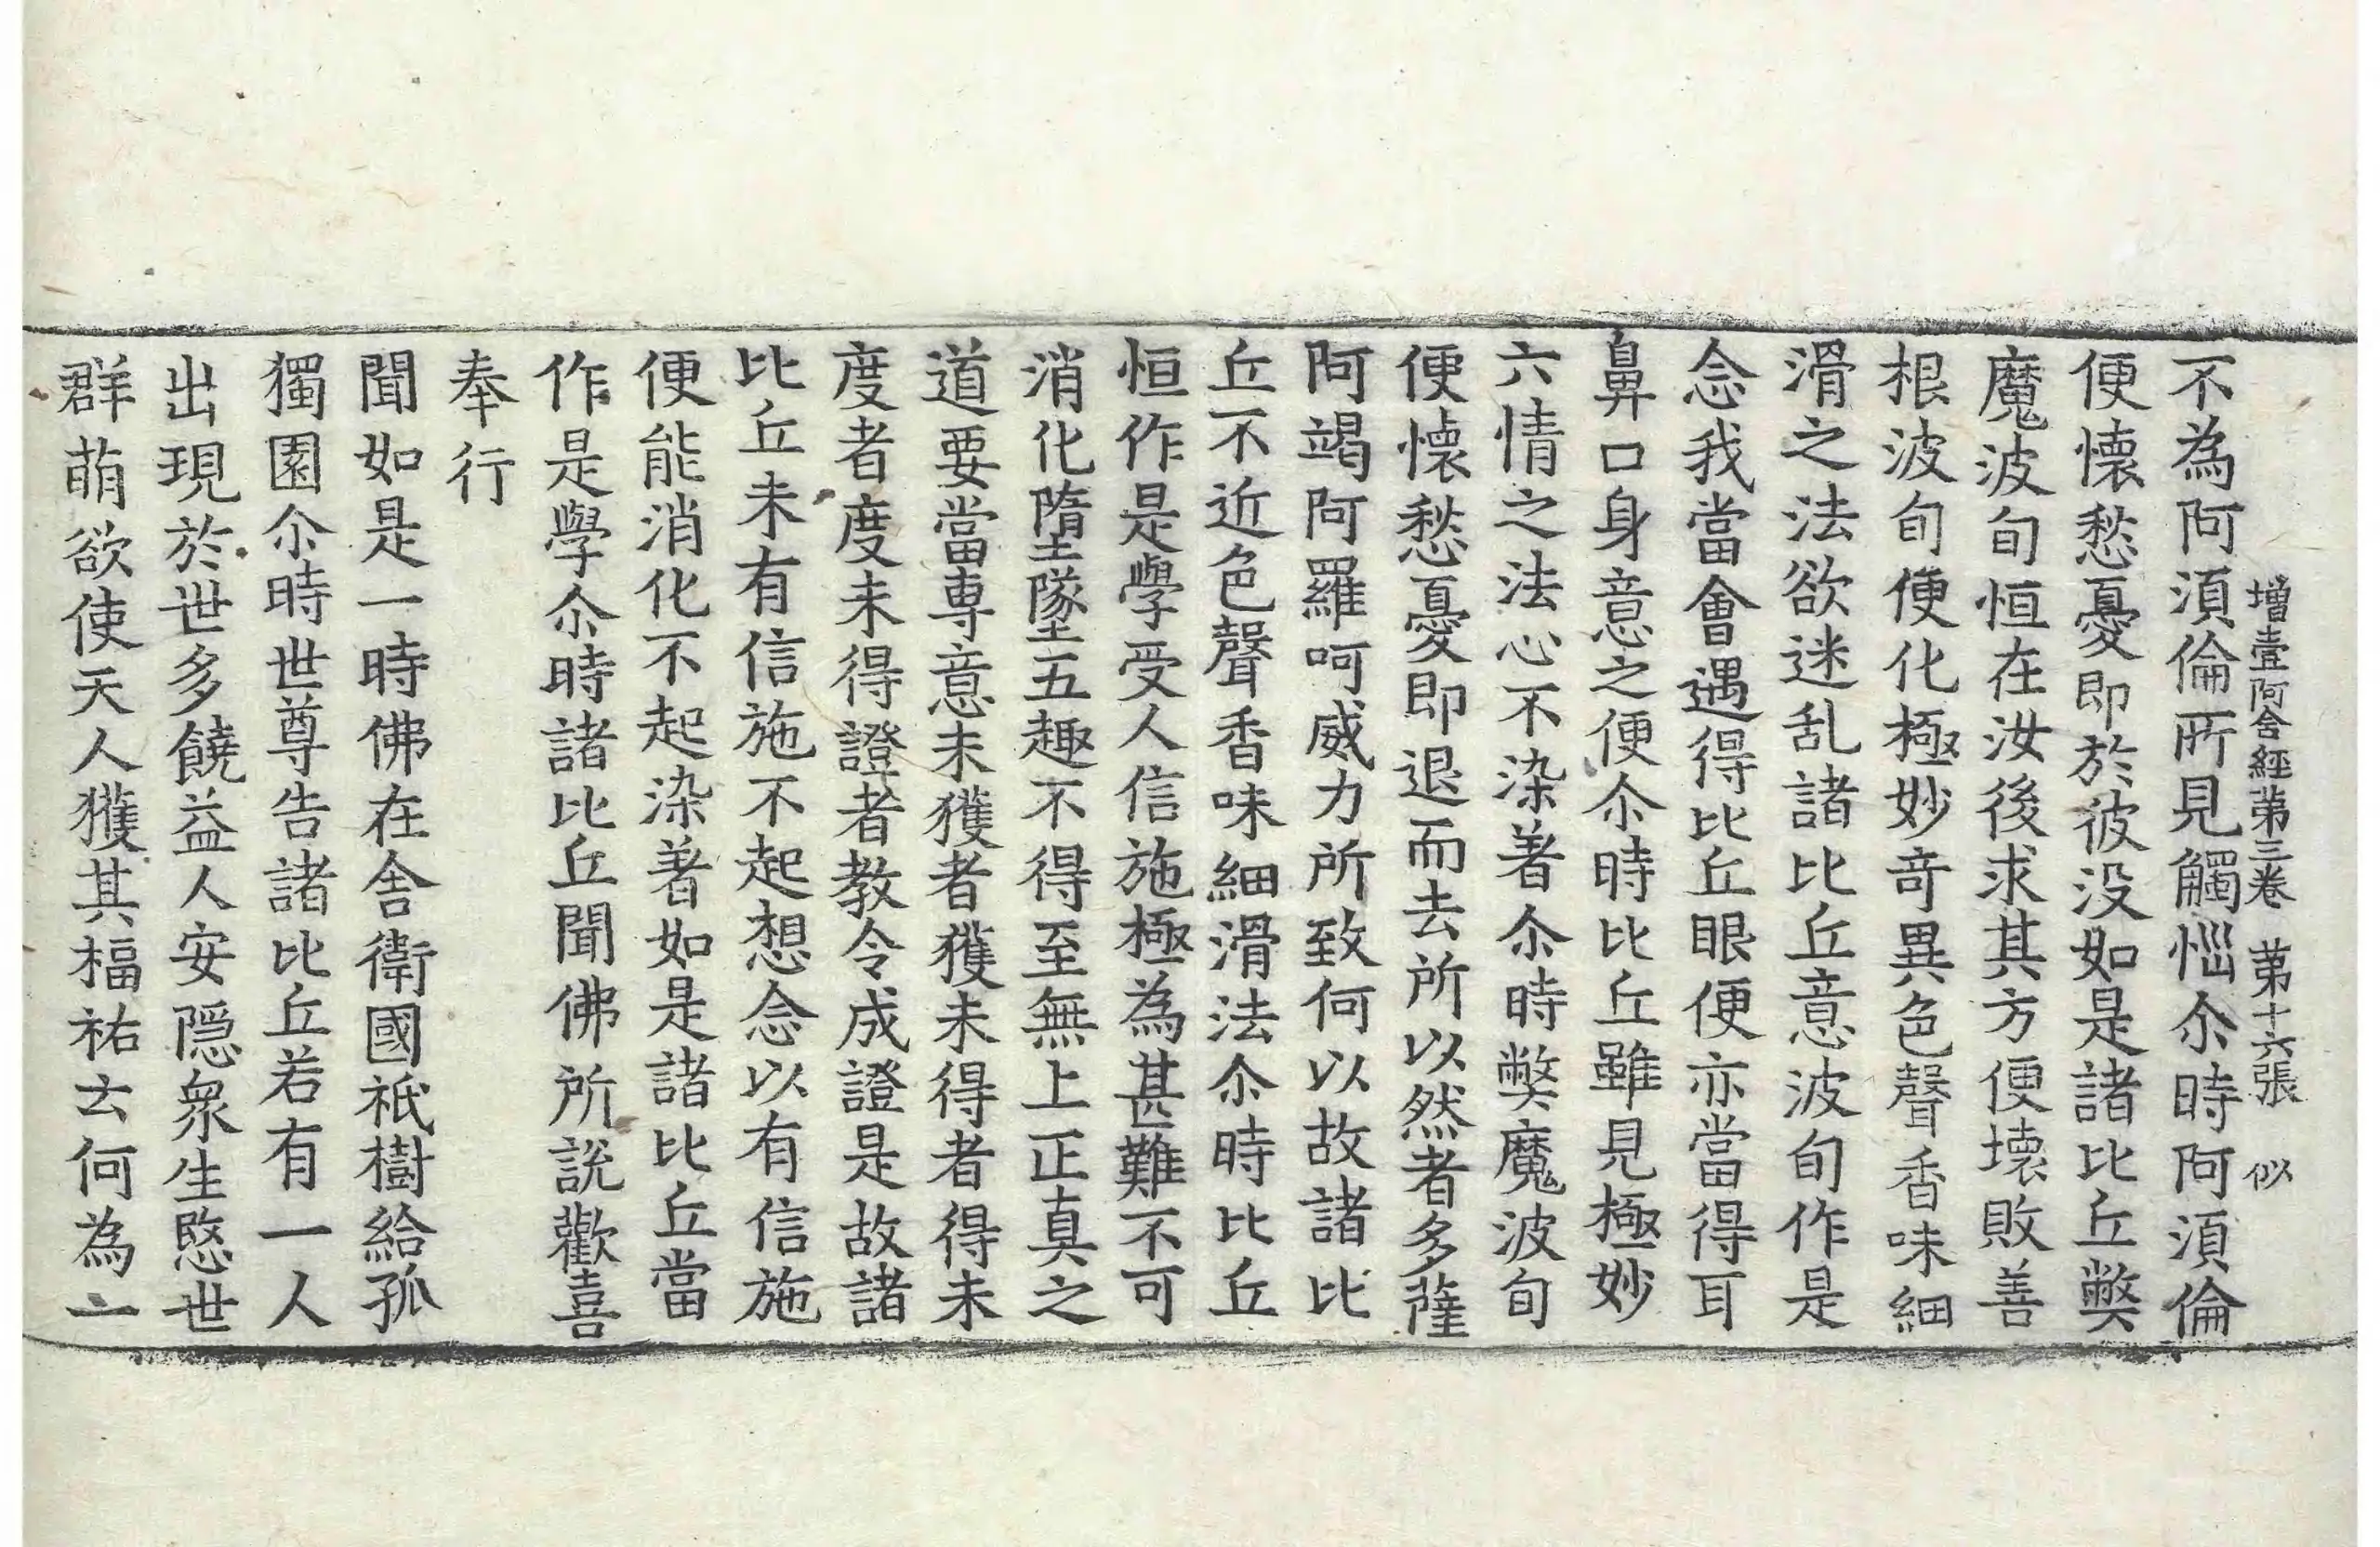 增壹阿含經第三卷 第十六張 似
不為阿須倫所見觸惱尒時阿須倫
便懷愁憂即於彼没如是諸比丘弊
魔波旬恒在汝後求其方便壞敗善
根波旬便化極妙奇異色聲香味細
滑之法欲迷乱諸比丘意波旬作是
念我當會遇得比丘眼便亦當得耳
鼻口身意之便尒時比丘雖見極妙
六情之法心不染著尒時弊魔波旬
便懷愁憂即退而去所以然者多薩
阿竭阿羅呵威力所致何以故諸比
丘不近色聲香味細滑法尒時比丘
恒作是學受人信施極為甚難不可
消化墮墜五趣不得至無上正真之
道要當專意未獲者獲未得者得未
度者度未得證者教令成證是故諸
比丘未有信施不起想念以有信施
便能消化不起染著如是諸比丘當
作是學尒時諸比丘聞佛所說歡喜
奉行
聞如是一時佛在舍衛國祇樹給孤
獨園尒時世尊告諸比丘若有一人
出現於世多饒益人安隱衆生愍世
群萌欲使天人獲其福祐云何為一